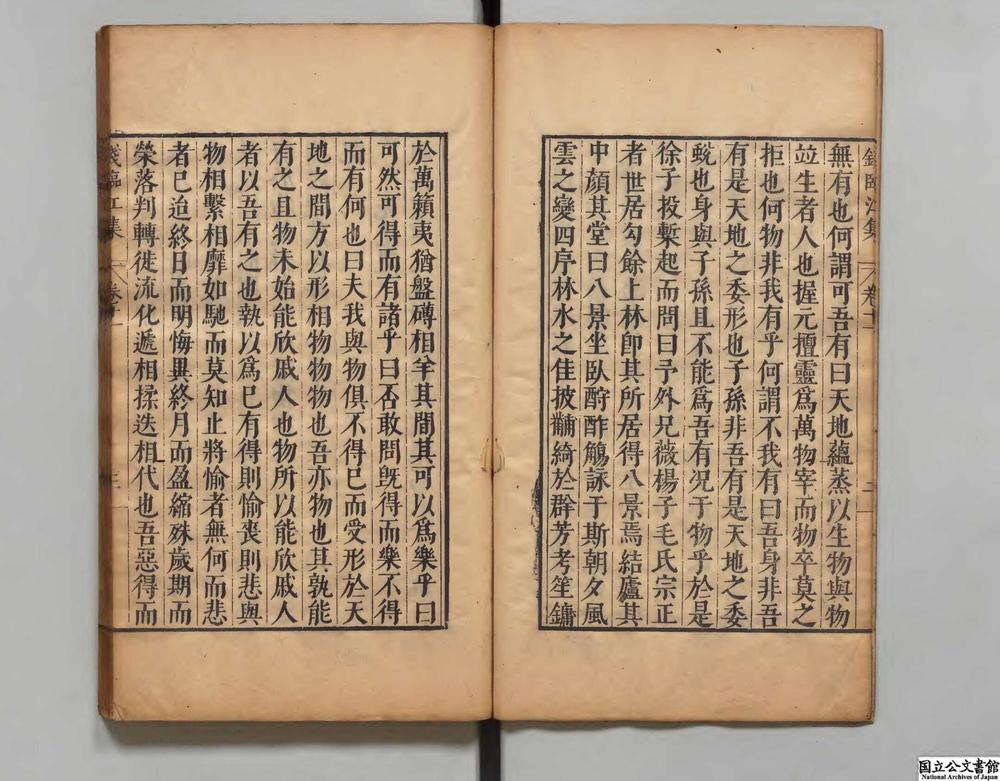 錢臨江集 卷十一 二
無有也何謂可吾有曰天地蘊蒸以生物與物
竝生者人也握元擅靈爲萬物宰而物卒莫之
拒也何物非我有乎何謂不我有曰吾身非吾
有是天地之委形也子孫非吾有是天地之委
蛻也身與子孫且不能爲吾有况于物乎於是
徐子投塹起而問曰予外兄薇楊子毛氏宗正
者世居勾餘上林卽其所居得八景焉結廬其
中顏其堂曰八景坐臥酧酢觴詠于斯朝夕風
雲之變四序林水之隹披黼綺於群芳考笙鏞
於萬籟夷猶盤礡相羊其間其可以爲樂乎曰
可然可得而有諸乎曰否敢問旣得而樂不得
而有何也曰夫我與物俱不得已而受形於天
地之間方以形相物物物也吾亦物也其孰能
有之且物未始能欣戚人也物所以能欣戚人
者以吾有之也執以爲已有得則愉喪則悲與
物相繫相靡如馳而莫知止將愉者無何而悲
者已迫終日而明悔異終月而盈縮殊歲期而
榮落判轉徙流化遞相揉迭相代也吾惡得而
錢臨江集 卷十一 三
国立公文書館
National Archives of Japan